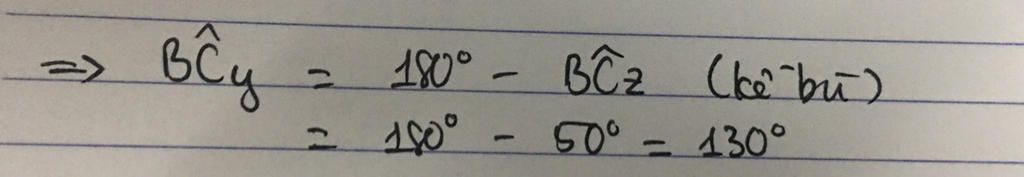 => BĈy = 180° - BĈz (kề bù)
= 180° - 50° = 130°